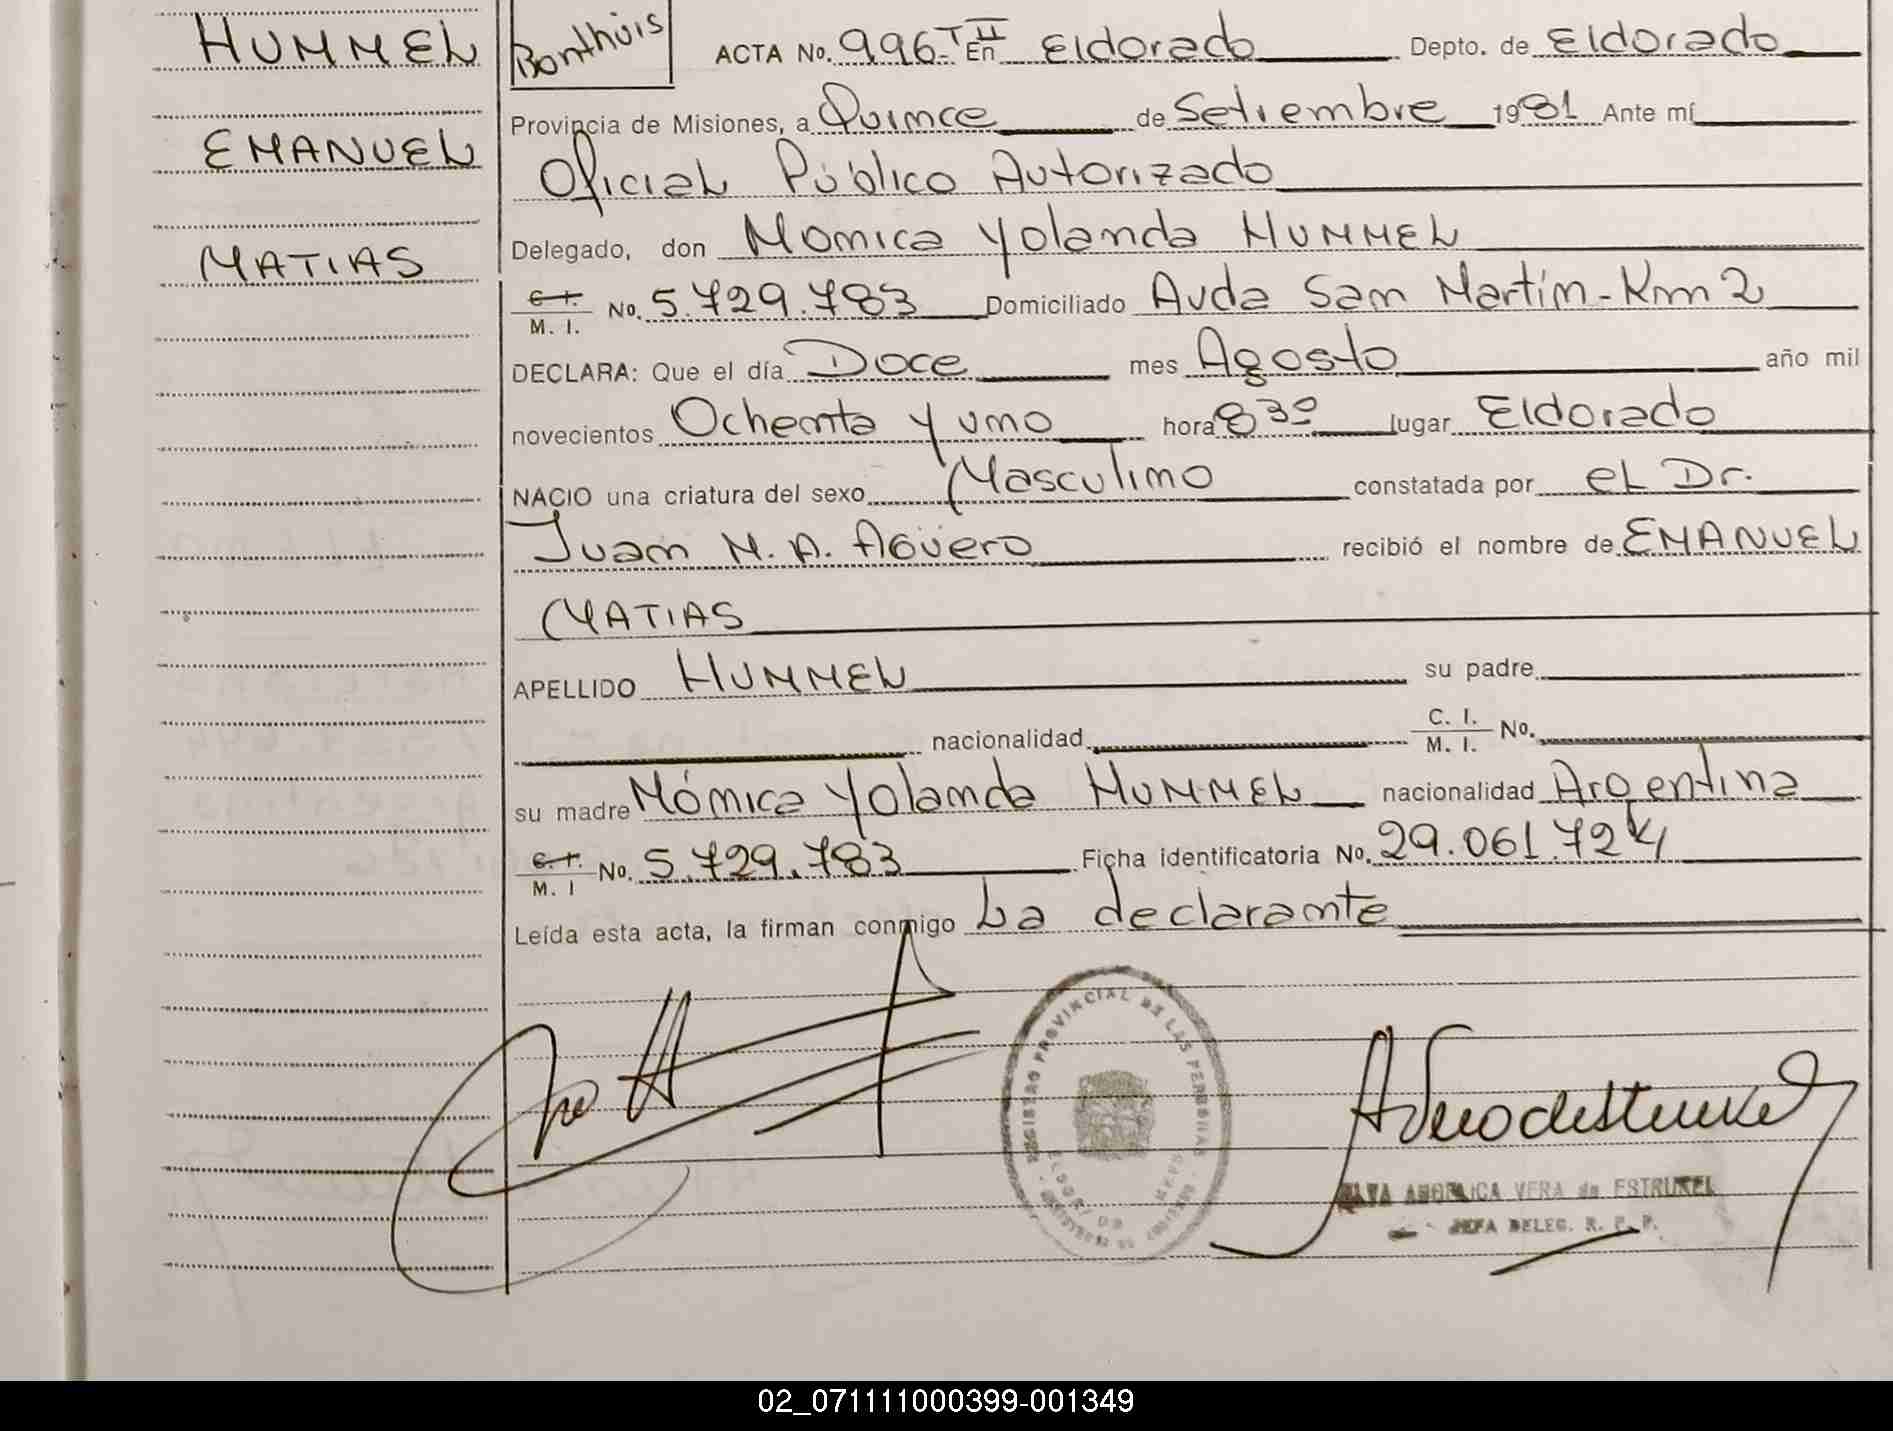 HUMMEL
EMANUEL
MATIAS
Bonthuis
ACTA No. 996-T II En Eldorado Depto. de Eldorado
Provincia de Misiones, a Quince de Setiembre 1981 Ante mí
Oficial Público Autorizado
Delegado, don Monica Yolanda HUMMEL
C. I. M. I. No. 5.729.783 Domiciliado Avda San Martín - Km 2
DECLARA: Que el día Doce mes Agosto año mil
novecientos Ochenta y uno hora 8 30 lugar Eldorado
NACIO una criatura del sexo Masculino constatada por el Dr.
Juan M. A. Agüero recibió el nombre de EMANUEL
MATIAS
APELLIDO HUMMEL su padre
nacionalidad C. I. M. I. No.
su madre Mónica Yolanda HUMMEL nacionalidad Argentina
C. I. M. I No. 5.729.783 Ficha identificatoria No. 29.061.724
Leída esta acta, la firman conmigo La declarante
REGISTRO PROVINCIAL DE LAS PERSONAS
ELDORADO
ANGELICA VERA de ESTRUKEL
JEFA DELEG. R. P. P.
02_071111000399-001349